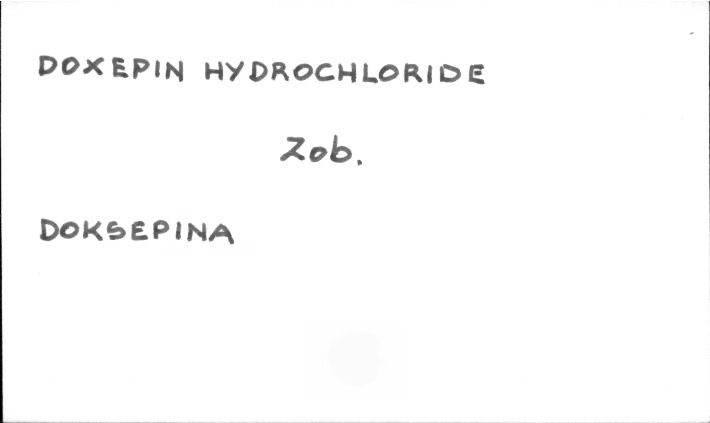 DOXEPIN HYDROCHLORIDE
Zob.
DOKSEPINA